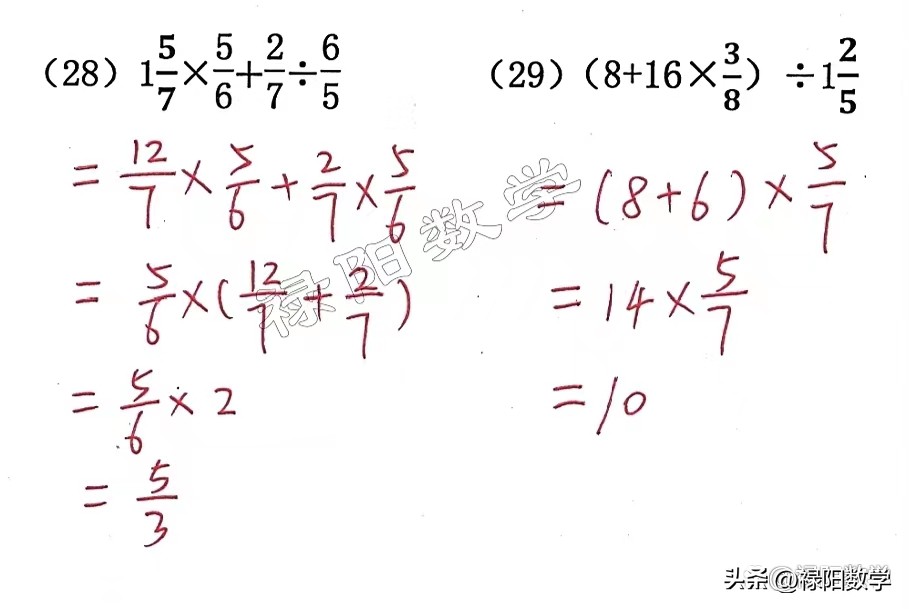 (28) 1 5/7 × 5/6 + 2/7 ÷ 6/5
= 12/7 × 5/6 + 2/7 × 5/6
= 5/6 × (12/7 + 2/7)
= 5/6 × 2
= 5/3
(29) (8+16 × 3/8) ÷ 1 2/5
= (8+6) × 5/7
= 14 × 5/7
= 10
禄阳数学
头条 @禄阳数学